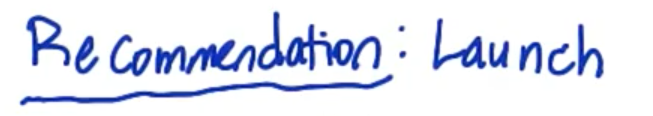 Recommendation: Launch